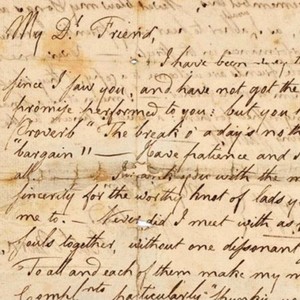 My Dr. Friend,
I have been
since I saw you, and have not got the
promise performed to you: but you
Proverb" "The break o' a day's no th
"bargain" — Have patience and
all with the m
sincerity for the worthy knot of lads y
me to. — Never did I meet with as
souls together, without one dissonant
To all and each of them make my m
Complnts particularly